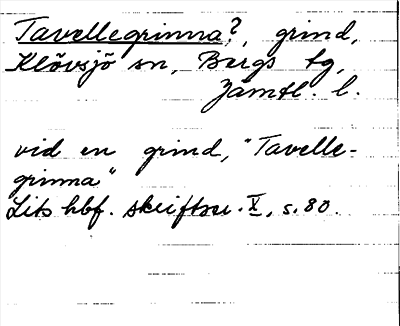 Tavellegrinna?, grind,
Klövsjö sn, Bergs tg,
Jämtl. l.
vid en grind, "Tavelle-
grinna"
Lits hbf. skriftser. X, s. 80.